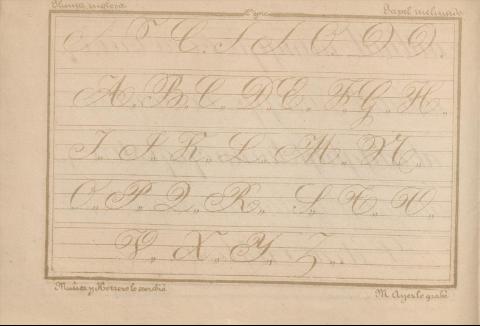 Pluma inglesa Papel inclinado
A. B. C. D. E. F. G. H.
I. J. K. L. M. N.
O. P. Q. R. S. T. U.
V. X. Y. Z.
y Herrero lo escribió M. Ayerlo grabó